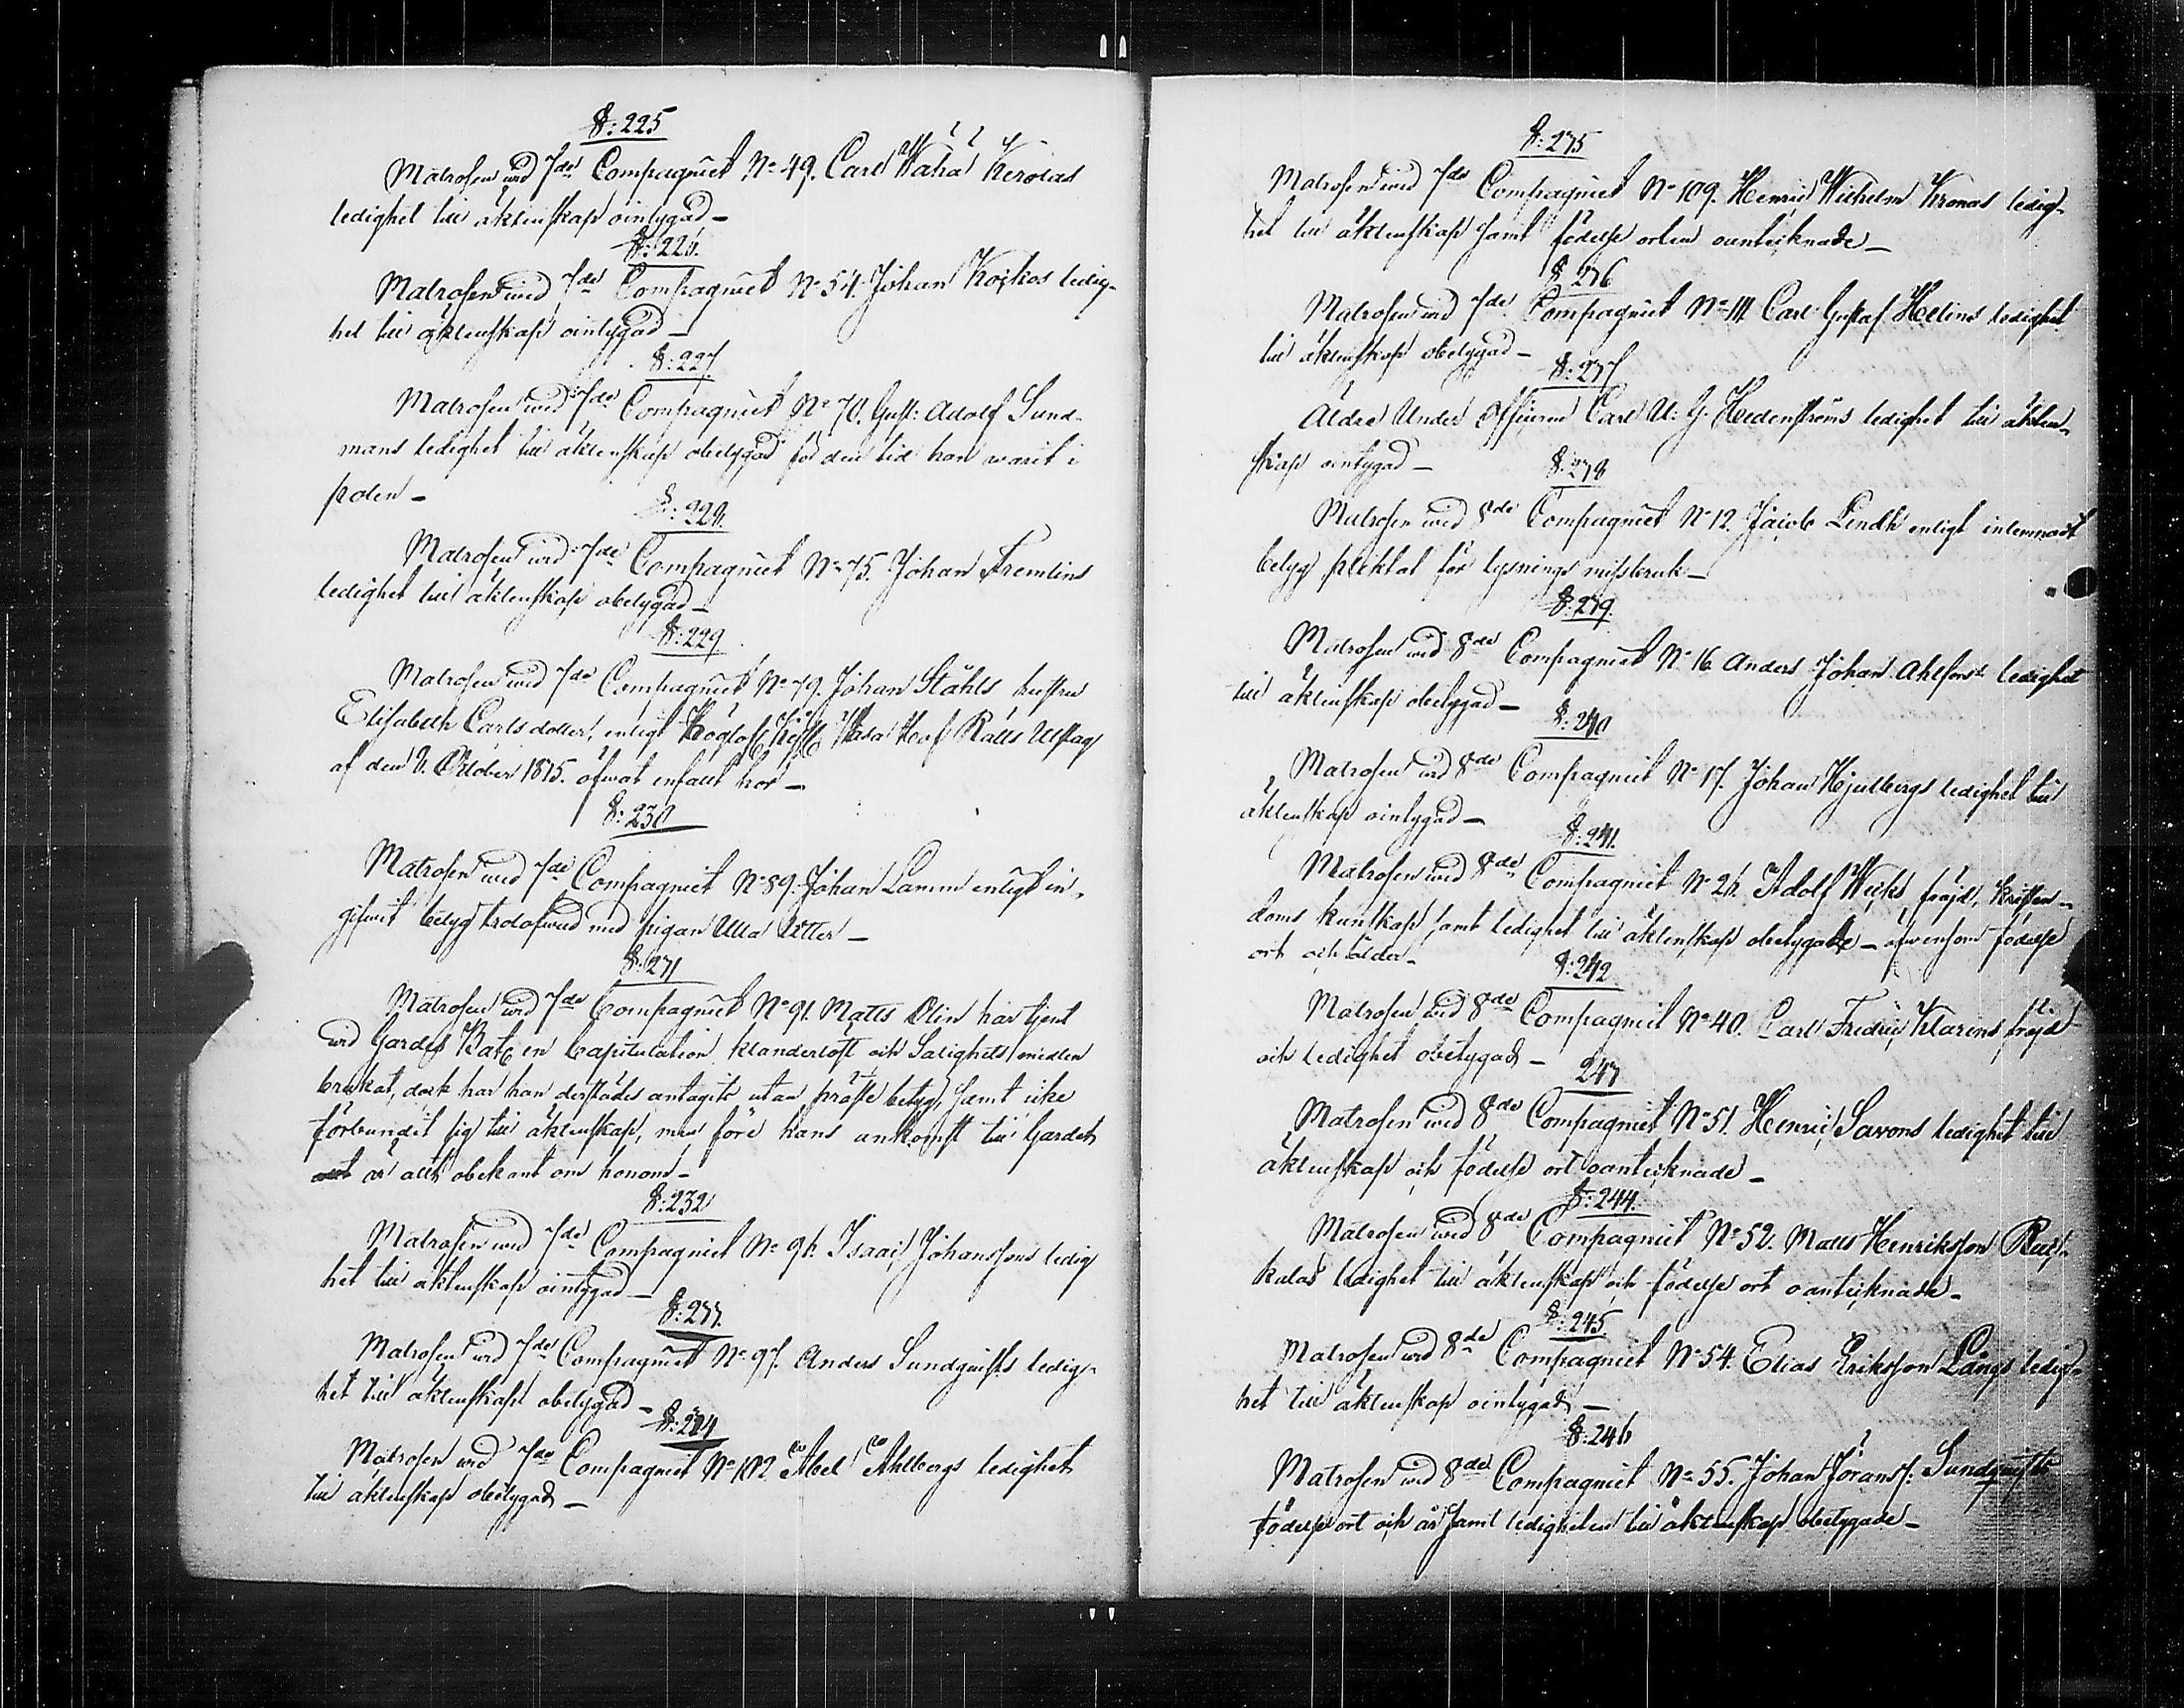 §: 225
Matrosen wid 7de Compagniet No 49. Carl Waha Kerolas
ledighet till äktenskap ointygad –
§: 226.
Matrosen wid 7de Compagniet No 54. Johan Koskos ledig-
het till äktenskap ointygad –
§: 227.
Matrosen wid 7de Compagniet No 70. Gust: Adolf Sund-
mans ledighet till äktenskap obetygad för den tid han warit i
staten –
§: 228.
Matrosen wid 7de Compagniet No 75. Johan Fremlins
ledighet till äktenskap obetygad –
§: 229
Matrosen wid 7de Compagniet No 79. Johan Ståhls hustru
Elisabeth Carlsdotter, enligt Höglofl. Wasa Hof Rätts Utslag
af den 2. Oktober 1815. öfwat enfallt hor –
§: 230
Matrosen wid 7de Compagniet No 89. Johan Lamm enligt in-
gifwit betyg trolofwad med pigan Ulla Utter –
§: 231
Matrosen wid 7de Compagniet No 91. Matts Olin har tjent
wid Gardes Bat: en Capitulation klanderlöst och Salighets medlen
brukat, dock har han derstädes antagits utan präste betyg, samt icke
förbundit sig till äktenskap, men före hans ankomst till Gardet
är allt obekant om honom –
§: 232
Matrosen wid 7de Compagniet No 96. Isaac Johanssons ledig
het till äktenskap ointygad –
§: 233.
Matrosen wid 7de Compagniet No 97. Anders Sundquists ledig-
het till äktenskap obetygad –
§: 234
Matrosen wid 7de Compagniet No 102 Abel Ahlbergs ledighet
till äktenskap obetygad –
§: 235
Matrosen wid 7de Compagniet No 109. Henric Wilhelm Kronas ledig-
het till äktenskap samt födelse orten oantecknade –
§ 236
Matrosen wid 7de Compagniet No 111 Carl Gustaf Helins ledighet
till äktenskap obetygad –
§: 237
Äldre Under Officeren Carl U: G. Hedenströms ledighet till äkten-
skap ointygad –
§: 238
Matrosen wid 8de Compagniet No 12. Jacob Lindh enligt inlemnadt
betyg pliktat för lysnings missbruk –
§: 239.
Matrosen wid 8de Compagniet No 16 Anders Johan Ahlfors ledighet
till äktenskap obetygad –
§: 240
Matrosen wid 8de Compagniet No 17. Johan Hjulbergs ledighet till
äktenskap ointygad –
§: 241.
Matrosen wid 8de Compagniet No 26. Adolf Weiks, fräjd, kristen-
doms kunskap samt ledighet till äktenskap obetygade – äfwensom födelse
ort och ålder –
§: 242
Matrosen wid 8de Compagniet No 40. Carl Fredric Klarens fräjd
och ledighet obetygad –
243
Matrosen wid 8de Compagniet No 51. Henric Savons ledighet till
äktenskap och födelse ort oantecknade –
§: 244.
Matrosen wid 8de Compagniet No 52. Matts Henriksson
kalas ledighet till äktenskap och födelse ort oantecknade –
§: 245
Matrosen wid 8de Compagniet No 54. Elias Eriksson Långs ledig-
het till äktenskap ointygad –
§: 246
Matrosen wid 8de Compagniet No 55. Johan Joranss: Sundquists
födelse ort och år samt ledigheten till äktenskap obetygade –